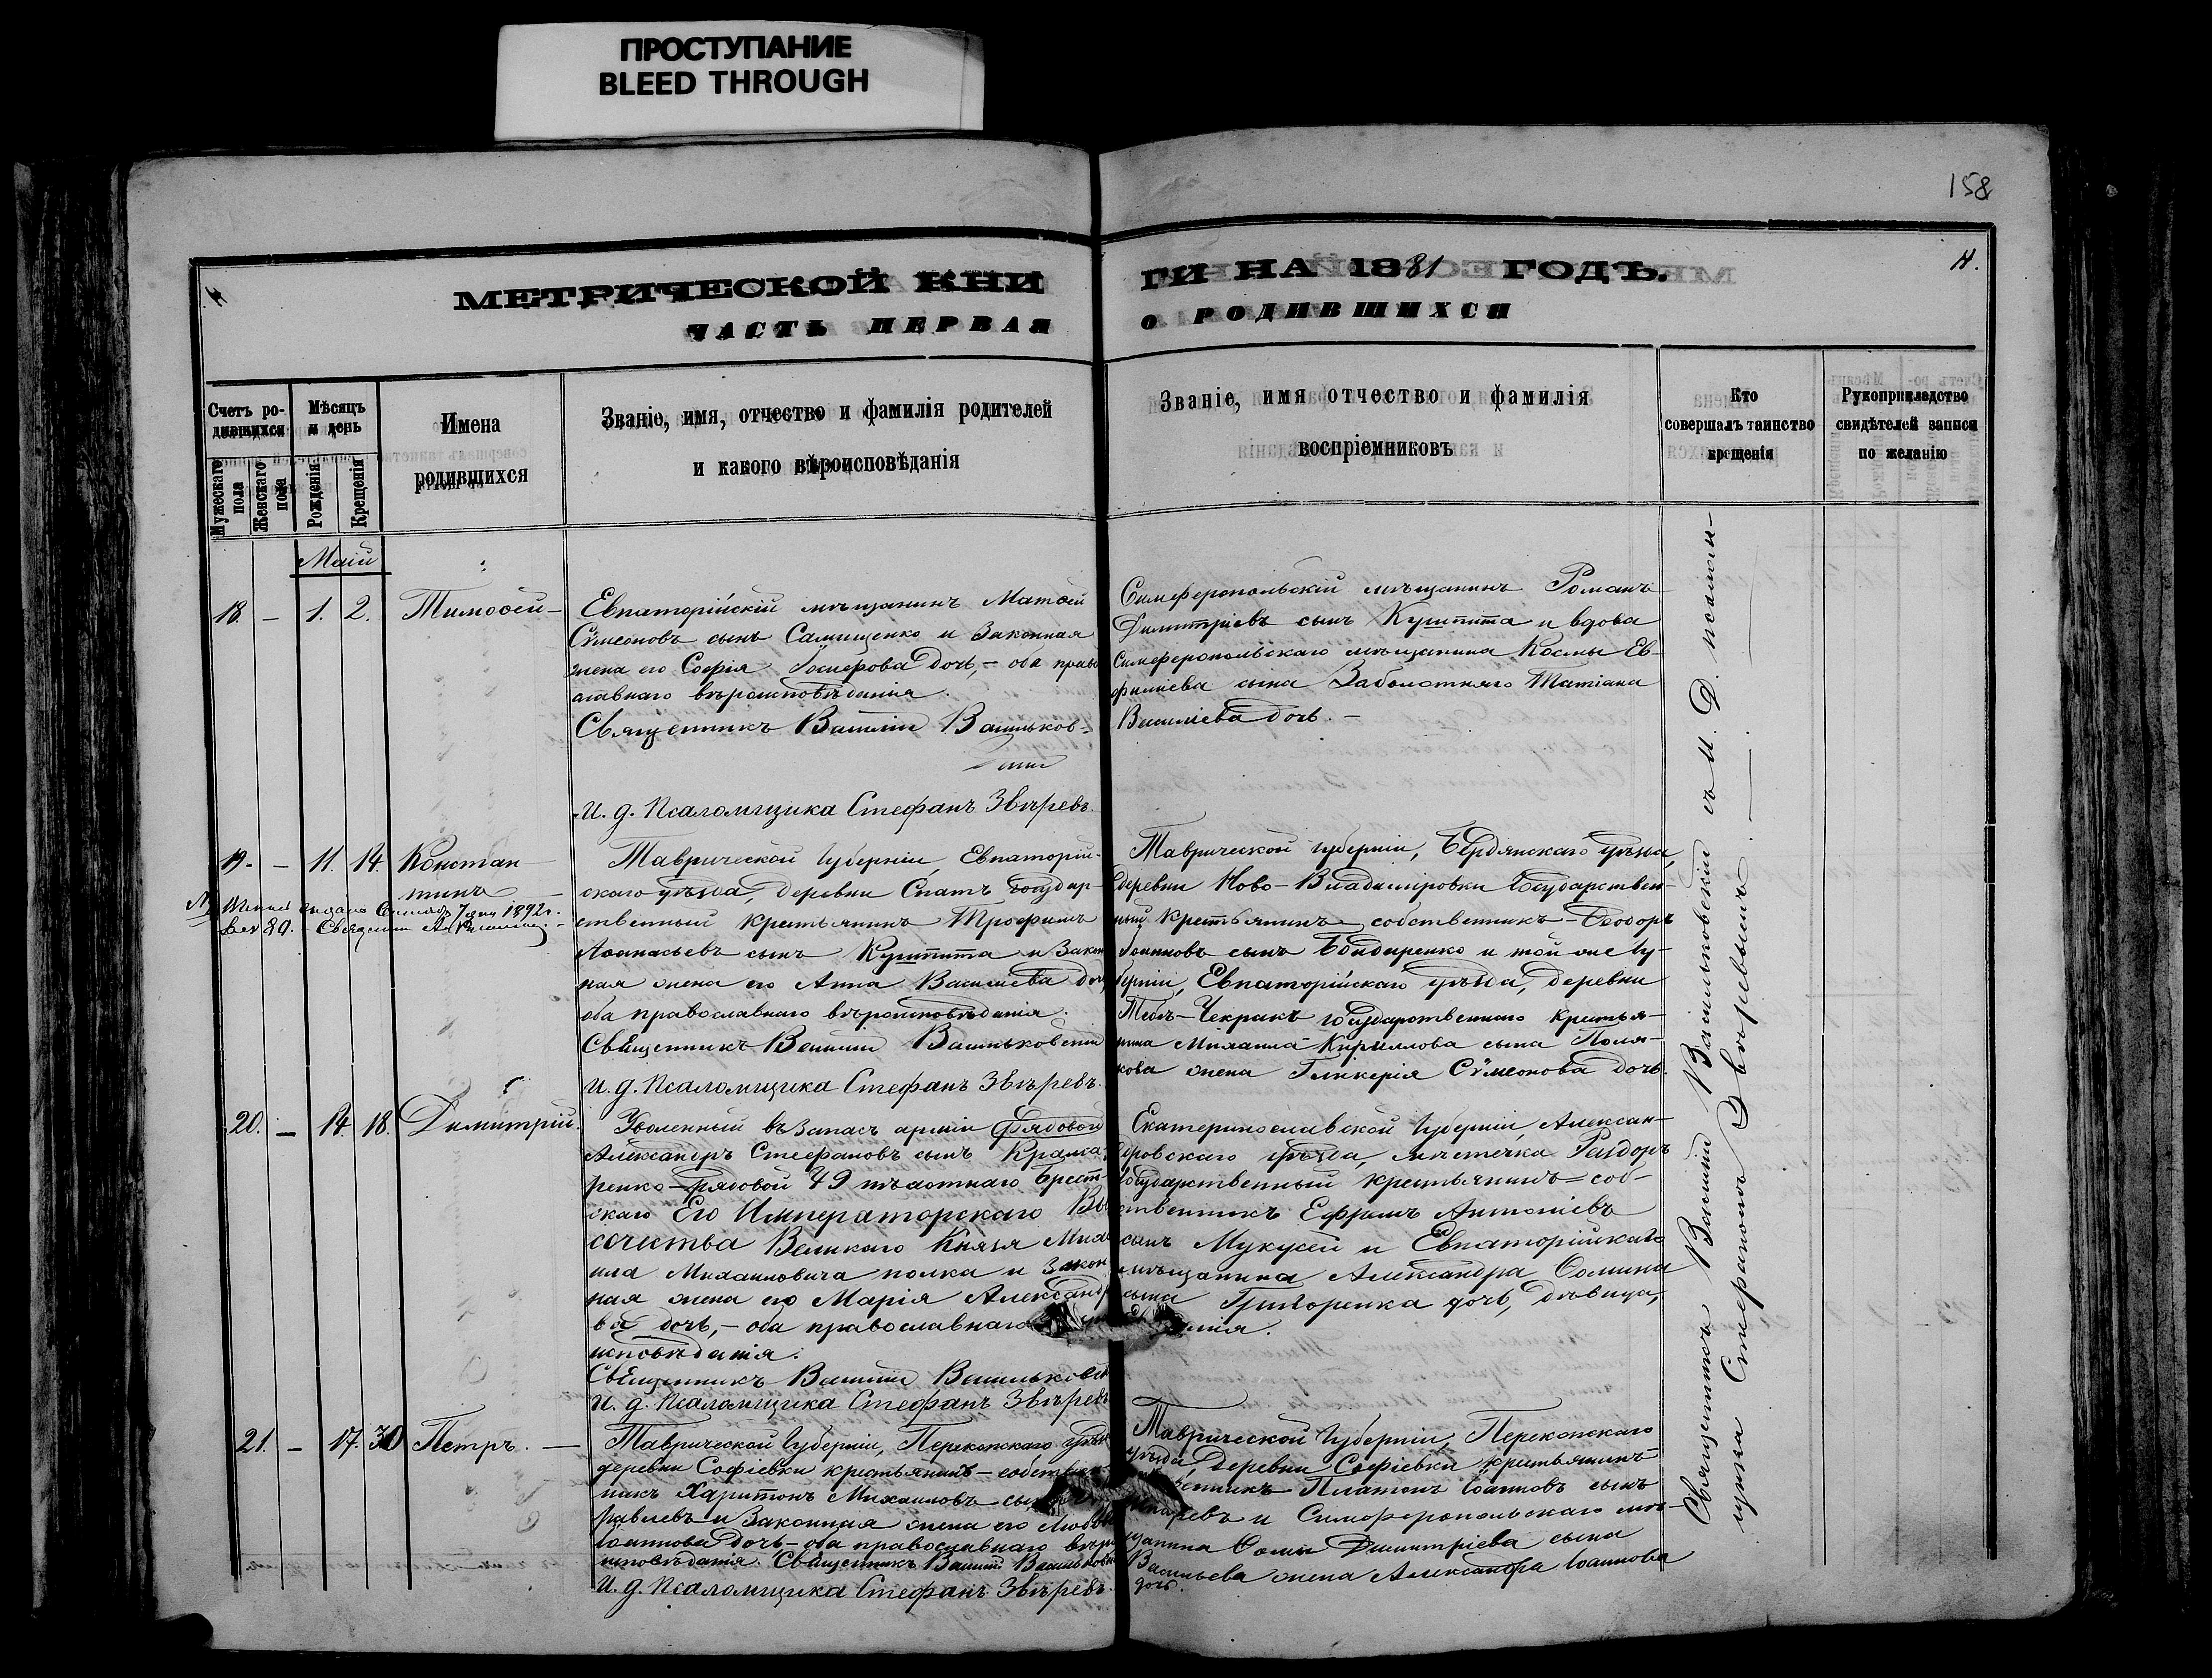 ПРОСТУПАНИЕ
BLEED THROUGH
158
4
МЕТРИЧЕСКОЙ КНИ
ЧАСТЬ ПЕРВАЯ
ГИ НА 1881 ГОДЪ.
О РОДИВШИХСЯ
4.
Счетъ ро-
дившихся
Мужескаго пола
Женскаго пола
Мѣсяцъ
и день
Рожденія
Крещенія
Имена
родившихся
Званіе, имя, отчество и фамилія родителей
и какого вѣроисповѣданія
Званіе, имя отчество и фамилія
воспріемниковъ
Кто
совершалъ таинство
крещенія
Рукоприкладство
свидѣтелей записи
по желанію
Маій
18. – 1. 2. Тимоѳей –
Евпаторійскій мѣщанинъ Матѳей
Сѵмеоновъ сынъ Самищенко и законная
жена его Софія Іосифова дочь, – оба право
славнаго вѣроисповѣданія.
Священникъ Василій Васильков-
скій
И. д. Псаломщика Стефанъ Звѣревъ.
Симферопольскій мѣщанинъ Романъ
Димитріевъ сынъ Кушпита и вдова
Симферопольскаго мѣщанина Космы Ев-
фиміева сына Заболотняго Татіана
Василіева дочь. –
19. – 11. 14. Констан
тинъ –
выдано 1892г.
80.
Таврической губерніи, Евпаторій-
скаго уѣзда, деревни Спатъ государ-
ственный крестьянинъ Трофимъ
Аѳанасьевъ сынъ Кушпита и закон
ная жена его Анна Василіева дочь
оба православнаго вѣроисповѣданія.
Священникъ Василій Васильковскій
И. д. Псаломщика Стефанъ Звѣревъ.
Таврической губерніи, Бердянскаго уѣзда,
деревни Ново-Владиміровки государствен-
ный крестьянинъ собственникъ Ѳеодоръ
Іоанновъ сынъ Бондаренко и той же гу-
берніи, Евпаторійскаго уѣзда, деревни
Чекракъ государственнаго крестья-
нина Михаила Кириллова сына Поля-
кова жена Гликерія Сѵмеонова дочь.
20. – 14. 18. Димитрій.
Уволенный въ запасъ арміи рядовой
Александръ Стефановъ сынъ Крама
ренко – рядовой 49 пѣхотнаго Брест
скаго Его Императорскаго Вы
сочества Великаго Князя Миха
ила Михаиловича полка и закон
ная жена его Марія Александро
ва дочь, – оба православнаго
исповѣданія.
Священникъ Василій Васильковскій
И. д. Псаломщика Стефанъ Звѣревъ
Екатеринославской губерніи, Алексан-
дровскаго уѣзда, мѣстечка Раздоръ
государственный крестьянинъ = соб-
ственникъ Ефремъ Антоніевъ
сынъ Мукусей и Евпаторійскаго
мѣщанина Александра Ѳомина
сына Григоренка дочь, дѣвица,
21. – 17. 30 Петръ. –
Таврической губерніи, Перекопскаго уѣзда
деревни Софіевки крестьянинъ – собствен
никъ Харитонъ Михаиловъ сынъ
и законная жена его Любовь
Іоаннова дочь, – оба православнаго вѣро
исповѣданія. Священникъ Василій Васильковскій
И. д. Псаломщика Стефанъ Звѣревъ.
Таврической губерніи, Перекопскаго
уѣзда, деревни Софіевки крестьянинъ
Платонъ Іоанновъ сынъ
и Симферопольскаго мѣ-
щанина Ѳомы Димитріева сына
Васильева жена Александра Іоаннова
дочь.
Священникъ Василій Васильковскій съ И. Д. псалом-
щика Стефаномъ Звѣревымъ.